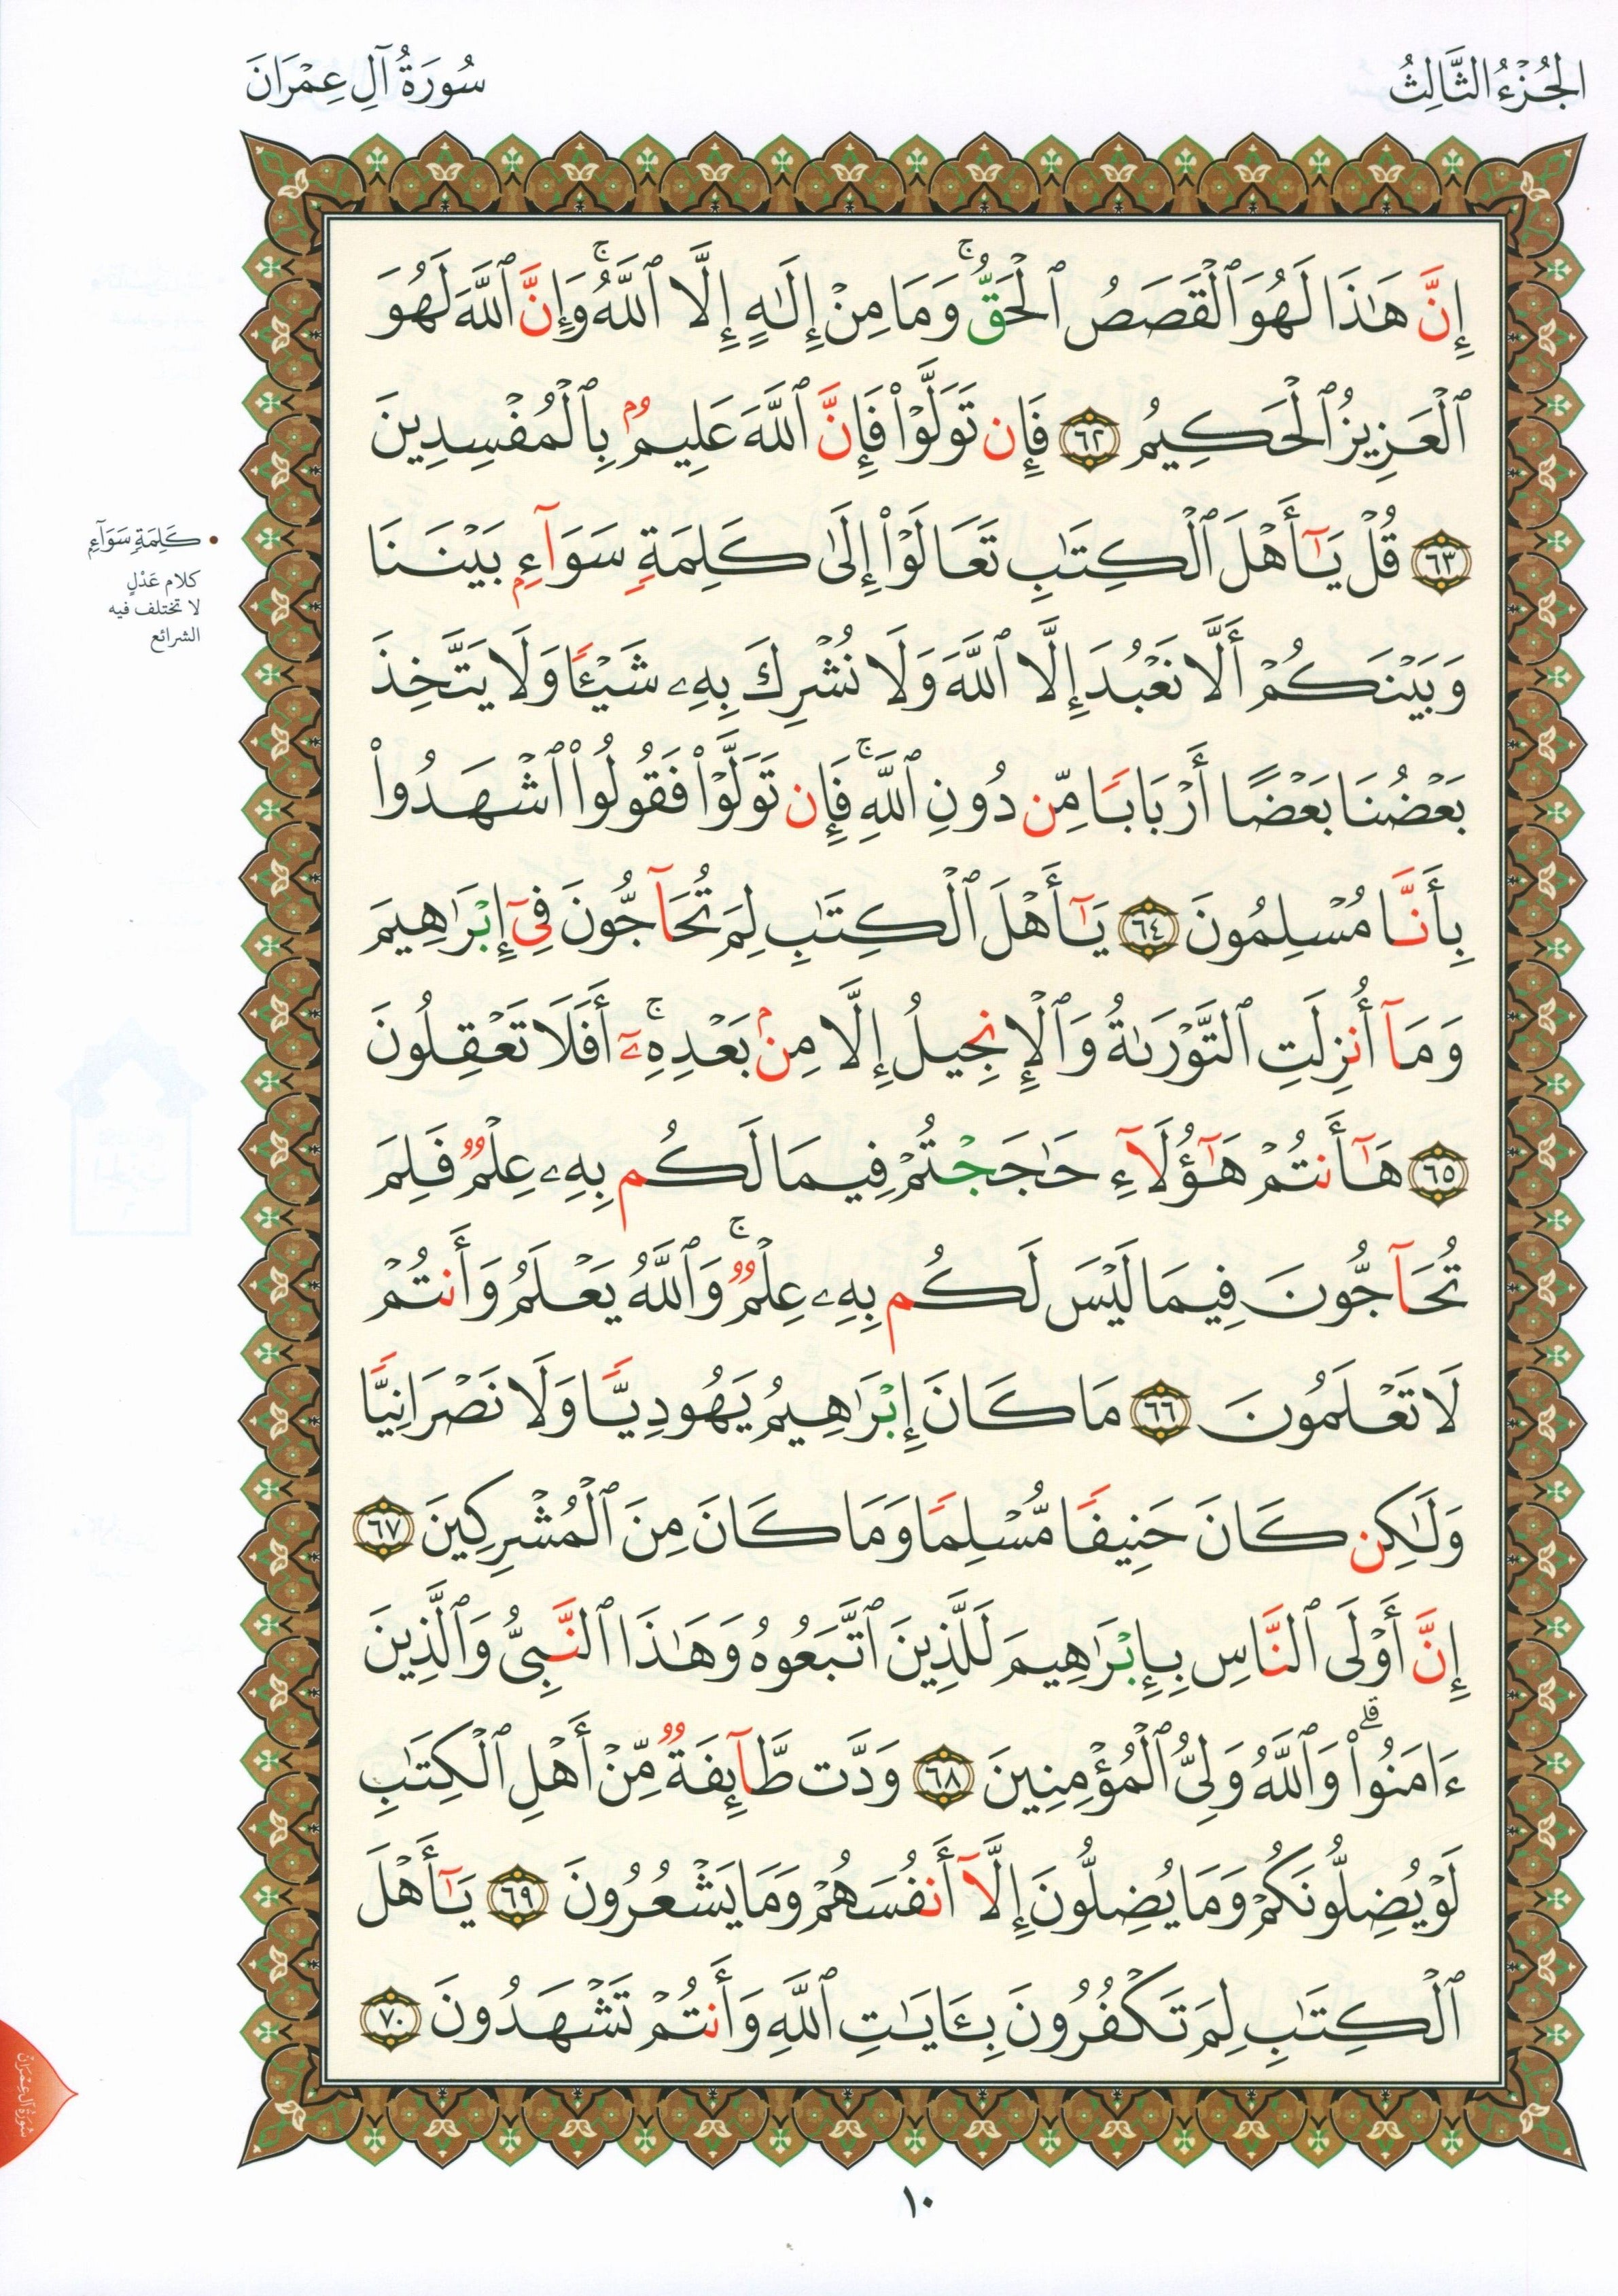 الجُزْءُ الثَّالِثُ
سُورَةُ آلِ عِمْرَانَ
إِنَّ هَٰذَا لَهُوَ ٱلْقَصَصُ ٱلْحَقُّ ۚ وَمَا مِنْ إِلَٰهٍ إِلَّا ٱللَّهُ ۚ وَإِنَّ ٱللَّهَ لَهُوَ
ٱلْعَزِيزُ ٱلْحَكِيمُ ٦٢ فَإِن تَوَلَّوْا۟ فَإِنَّ ٱللَّهَ عَلِيمٌۢ بِٱلْمُفْسِدِينَ
٦٣ قُلْ يَٰٓأَهْلَ ٱلْكِتَٰبِ تَعَالَوْا۟ إِلَىٰ كَلِمَةٍ سَوَآءٍۭ بَيْنَنَا
وَبَيْنَكُمْ أَلَّا نَعْبُدَ إِلَّا ٱللَّهَ وَلَا نُشْرِكَ بِهِۦ شَيْـًٔا وَلَا يَتَّخِذَ
بَعْضُنَا بَعْضًا أَرْبَابًا مِّن دُونِ ٱللَّهِ ۚ فَإِن تَوَلَّوْا۟ فَقُولُوا۟ ٱشْهَدُوا۟
بِأَنَّا مُسْلِمُونَ ٦٤ يَٰٓأَهْلَ ٱلْكِتَٰبِ لِمَ تُحَآجُّونَ فِىٓ إِبْرَٰهِيمَ
وَمَآ أُنزِلَتِ ٱلتَّوْرَىٰةُ وَٱلْإِنجِيلُ إِلَّا مِنۢ بَعْدِهِۦٓ ۚ أَفَلَا تَعْقِلُونَ
٦٥ هَٰٓأَنتُمْ هَٰٓؤُلَآءِ حَٰجَجْتُمْ فِيمَا لَكُم بِهِۦ عِلْمٌ فَلِمَ
تُحَآجُّونَ فِيمَا لَيْسَ لَكُم بِهِۦ عِلْمٌ ۚ وَٱللَّهُ يَعْلَمُ وَأَنتُمْ
لَا تَعْلَمُونَ ٦٦ مَا كَانَ إِبْرَٰهِيمُ يَهُودِيًّا وَلَا نَصْرَانِيًّا
وَلَٰكِن كَانَ حَنِيفًا مُّسْلِمًا وَمَا كَانَ مِنَ ٱلْمُشْرِكِينَ ٦٧
إِنَّ أَوْلَى ٱلنَّاسِ بِإِبْرَٰهِيمَ لَلَّذِينَ ٱتَّبَعُوهُ وَهَٰذَا ٱلنَّبِىُّ وَٱلَّذِينَ
ءَامَنُوا۟ ۗ وَٱللَّهُ وَلِىُّ ٱلْمُؤْمِنِينَ ٦٨ وَدَّت طَّآئِفَةٌ مِّنْ أَهْلِ ٱلْكِتَٰبِ
لَوْ يُضِلُّونَكُمْ وَمَا يُضِلُّونَ إِلَّآ أَنفُسَهُمْ وَمَا يَشْعُرُونَ ٦٩ يَٰٓأَهْلَ
ٱلْكِتَٰبِ لِمَ تَكْفُرُونَ بِـَٔايَٰتِ ٱللَّهِ وَأَنتُمْ تَشْهَدُونَ ٧٠
• كَلِمَةٍ سَوَآءٍ
كلام عَدْلٍ
لا تختلف فيه
الشرائع
سُورَةُ آلِ عِمْرَانَ
١٠